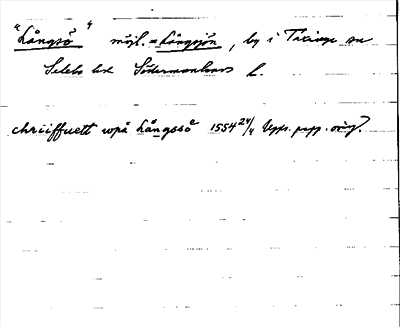 "Långsö" möjl. = Långsjön, by i Taxinge sn
Selebo hd Södermanlands l.
chriiffuett wpå Långssöe 1554 24/4 Upps. papp. orig.